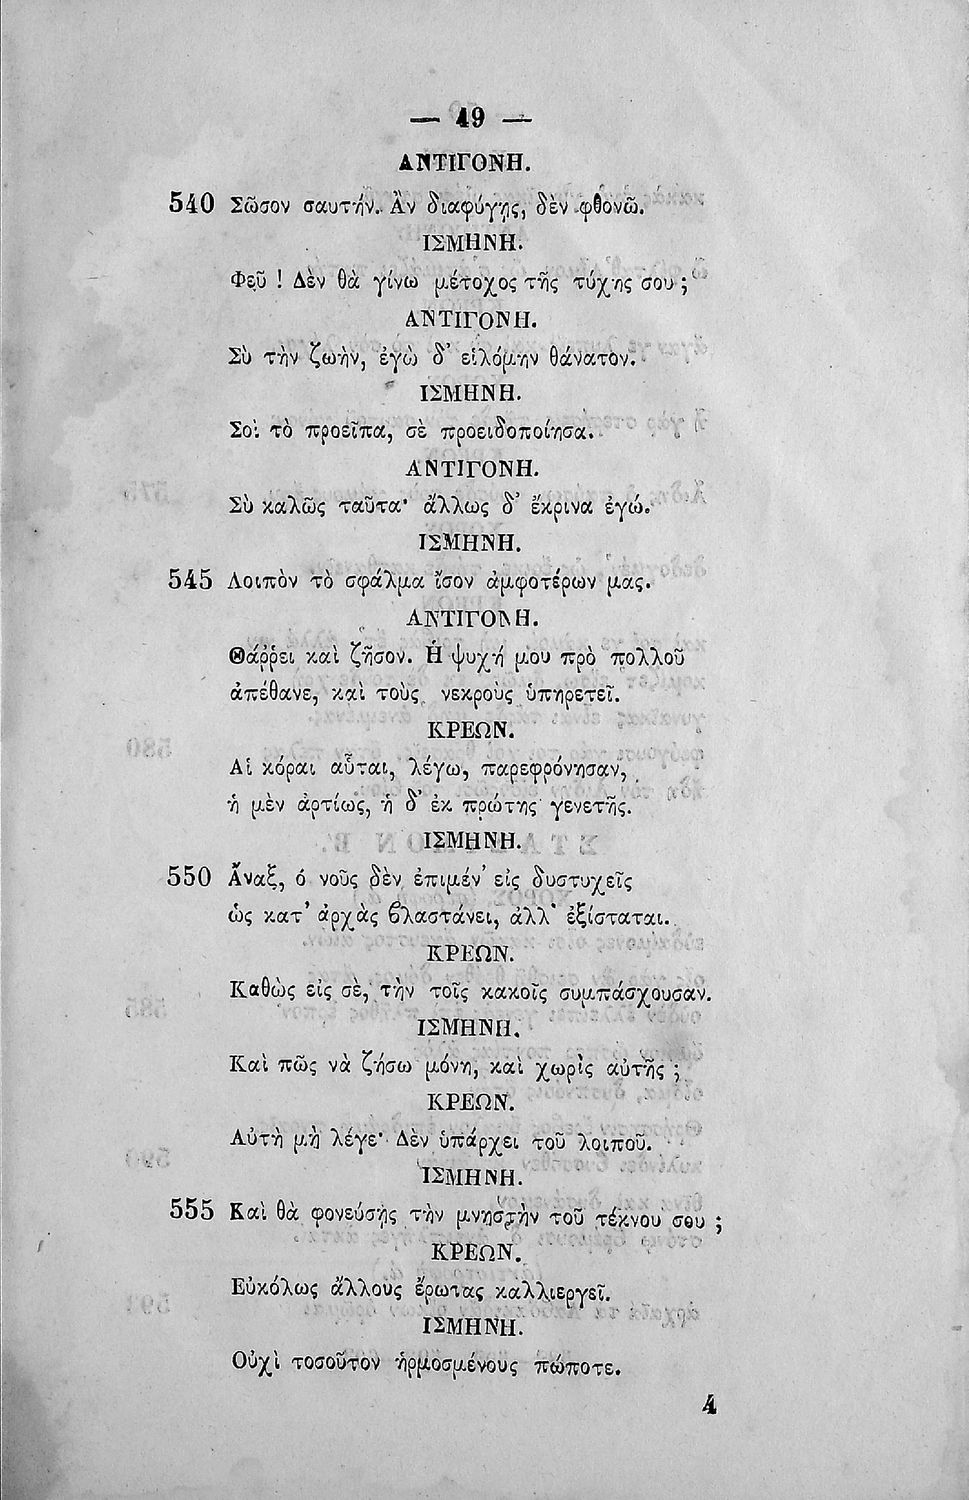 — 49 —
ΑΝΤΙΓΟΝΗ.
540 Σῶσον σαυτήν. Ἂν διαφύγῃς, δὲν φθονῶ.
ΙΣΜΗΝΗ.
Φεῦ ! Δὲν θὰ γίνω μέτοχος τῆς τύχης σου ;
ΑΝΤΙΓΟΝΗ.
Σὺ τὴν ζωὴν, ἐγὼ δ’ εἱλόμην θάνατον.
ΙΣΜΗΝΗ.
Σοὶ τὸ προεῖπα, σὲ προειδοποίησα.
ΑΝΤΙΓΟΝΗ.
Σὺ καλῶς ταῦτα· ἄλλως δ’ ἔκρινα ἐγώ.
ΙΣΜΗΝΗ.
545 Λοιπὸν τὸ σφάλμα ἴσον ἀμφοτέρων μας.
ΑΝΤΙΓΟΝΗ.
Θάῤῥει καὶ ζῆσον. Ἡ ψυχή μου πρὸ πολλοῦ
ἀπέθανε, καὶ τοὺς νεκροὺς ὑπηρετεῖ.
ΚΡΕΩΝ.
Αἱ κόραι αὗται, λέγω, παρεφρόνησαν,
ἡ μὲν ἀρτίως, ἡ δ’ ἐκ πρώτης γενετῆς.
ΙΣΜΗΝΗ.
550 Ἄναξ, ὁ νοῦς δὲν ἐπιμέν’ εἰς δυστυχεῖς
ὡς κατ’ ἀρχὰς βλαστάνει, ἀλλ’ ἐξίσταται.
ΚΡΕΩΝ.
Καθὼς εἰς σὲ, τὴν τοῖς κακοῖς συμπάσχουσαν.
ΙΣΜΗΝΗ.
Καὶ πῶς νὰ ζήσω μόνη, καὶ χωρὶς αὐτῆς ;
ΚΡΕΩΝ.
Αὐτὴ μὴ λέγε· Δὲν ὑπάρχει τοῦ λοιποῦ.
ΙΣΜΗΝΗ.
555 Καὶ θὰ φονεύσῃς τὴν μνηστὴν τοῦ τέκνου σου ;
ΚΡΕΩΝ.
Εὐκόλως ἄλλους ἔρωτας καλλιεργεῖ.
ΙΣΜΗΝΗ.
Οὐχὶ τοσοῦτον ἡρμοσμένους πώποτε.
4